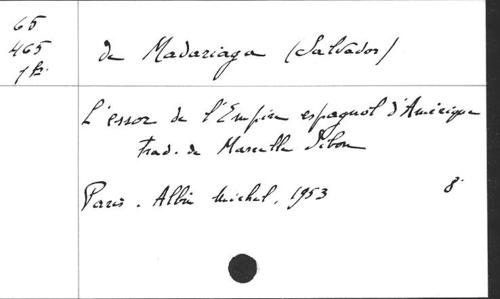 65
465
de Madariaga (Salvador)
L'essor de l'Empire espagnol d'Amérique
Trad. de Marcelle
Paris. Albin Michel, 1953 8°